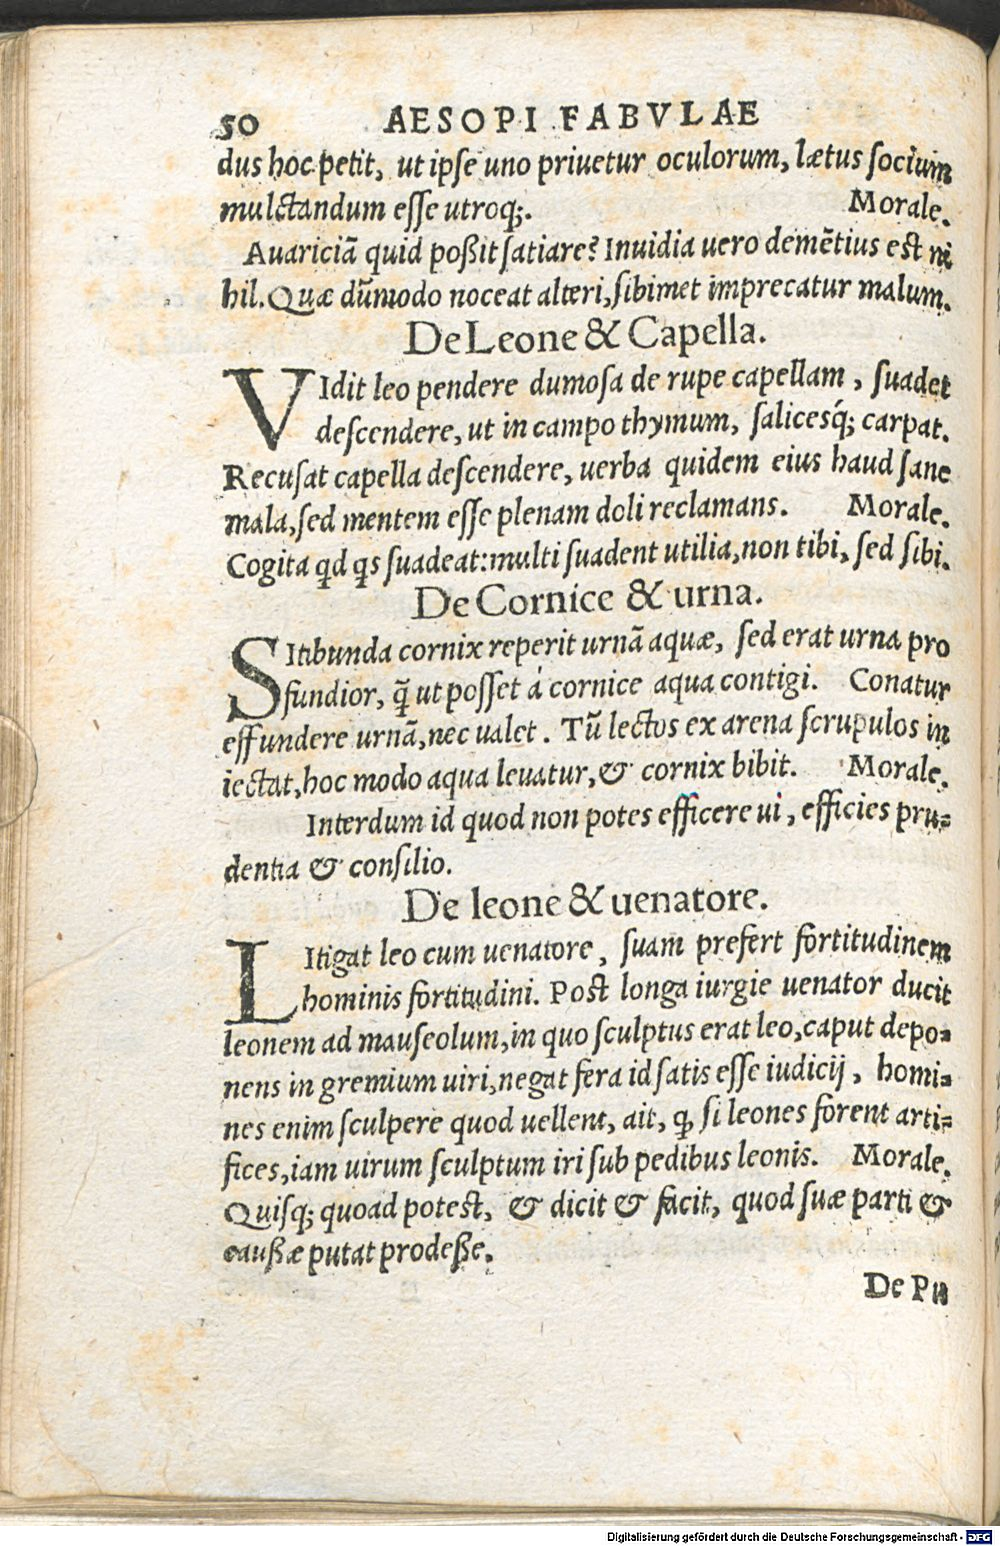 50 AESOPI FABVLAE
dus hoc petit, ut ipse uno priuetur oculorum, lætus socium
mulctandum esse utroq;. Morale.
Auariciā quid poßit satiare? Inuidia uero demētius est ni
hil. Quæ dūmodo noceat alteri, sibimet imprecatur malum.
De Leone & Capella.
VIdit leo pendere dumosa de rupe capellam, suadet
descendere, ut in campo thymum, salicesq́; carpat.
Recusat capella descendere, uerba quidem eius haud sane
mala, sed mentem esse plenam doli reclamans. Morale.
Cogita qd qs suadeat: multi suadent utilia, non tibi, sed sibi.
De Cornice & urna.
SItibunda cornix reperit urnā aquæ, sed erat urna pro
fundior, q̃ ut posset á cornice aqua contigi. Conatur
effundere urnā, nec ualet. Tū lectos ex arena scrupulos in
iectat, hoc modo aqua leuatur, & cornix bibit. Morale.
Interdum id quod non potes efficere ui, efficies pru-
dentia & consilio.
De leone & uenatore.
LItigat leo cum uenatore, suam prefert fortitudinem
hominis fortitudini. Post longa iurgie uenator ducit
leonem ad mauseolum, in quo sculptus erat leo, caput depo-
nens in gremium uiri, negat fera id satis esse iudicij, homi-
nes enim sculpere quod uellent, ait, ꝙ si leones forent arti-
fices, iam uirum sculptum iri sub pedibus leonis. Morale.
Quisq; quoad potest, & dicit & facit, quod suæ parti &
caußæ putat prodeße.
De Pu
Digitalisierung gefördert durch die Deutsche Forschungsgemeinschaft - DFG